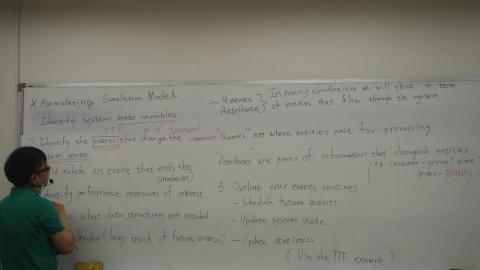 * Formulating Simulation Model
1. Identify system state variables
TTF
2. Identify the events that change the
system state
include an event that ends the
simulation)
Identify performance measures of interest
what data structures are needed
(keep track of future events)
- Queues
Attributes
In many simulations we will think in term
of entities that flow through the system
"Queues" are where entities wait for processing.
"Attributes" are pieces of information that distinguish entities
(ex: customer - arrival time
order - Priority)
5. Outline your events routines
- Schedule future events
- Update system state
- Update statistics
(Use the TTF example)